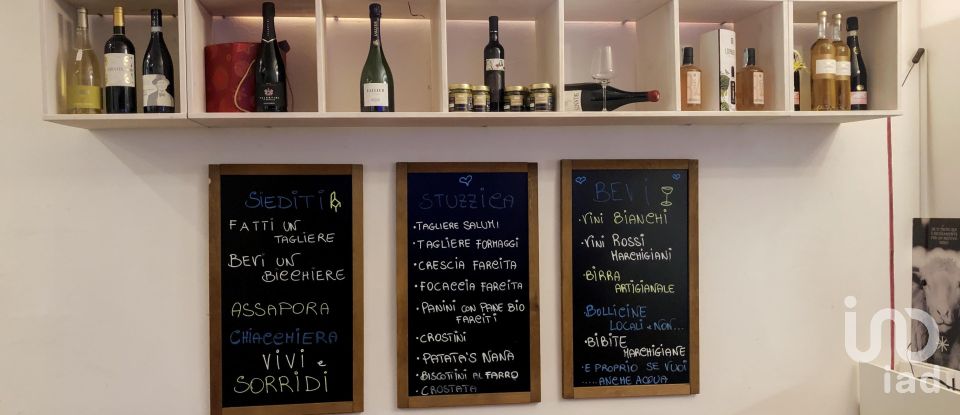 SIEDITI
FATTI UN
TAGLIERE
BEVI UN
BICCHIERE
ASSAPORA
CHIACCHIERA
VIVI e
SORRIDI
STUZZICA
• TAGLIERE SALUMI
• TAGLIERE FORMAGGI
• CRESCIA FARCITA
• FOCACCIA FARCITA
• PANINI CON PANE BIO
FARCITI
• CROSTINI
• PATATA'S NANA
• BISCOTTINI AL FARRO
• CROSTATA
BEVI
• VINI BIANCHI
• VINI ROSSI
MARCHIGIANI
• BIRRA
ARTIGIANALE
• BOLLICINE
LOCALI e NON...
• BIBITE
MARCHIGIANE
• E PROPRIO SE VUOI
.....ANCHE ACQUA
iad